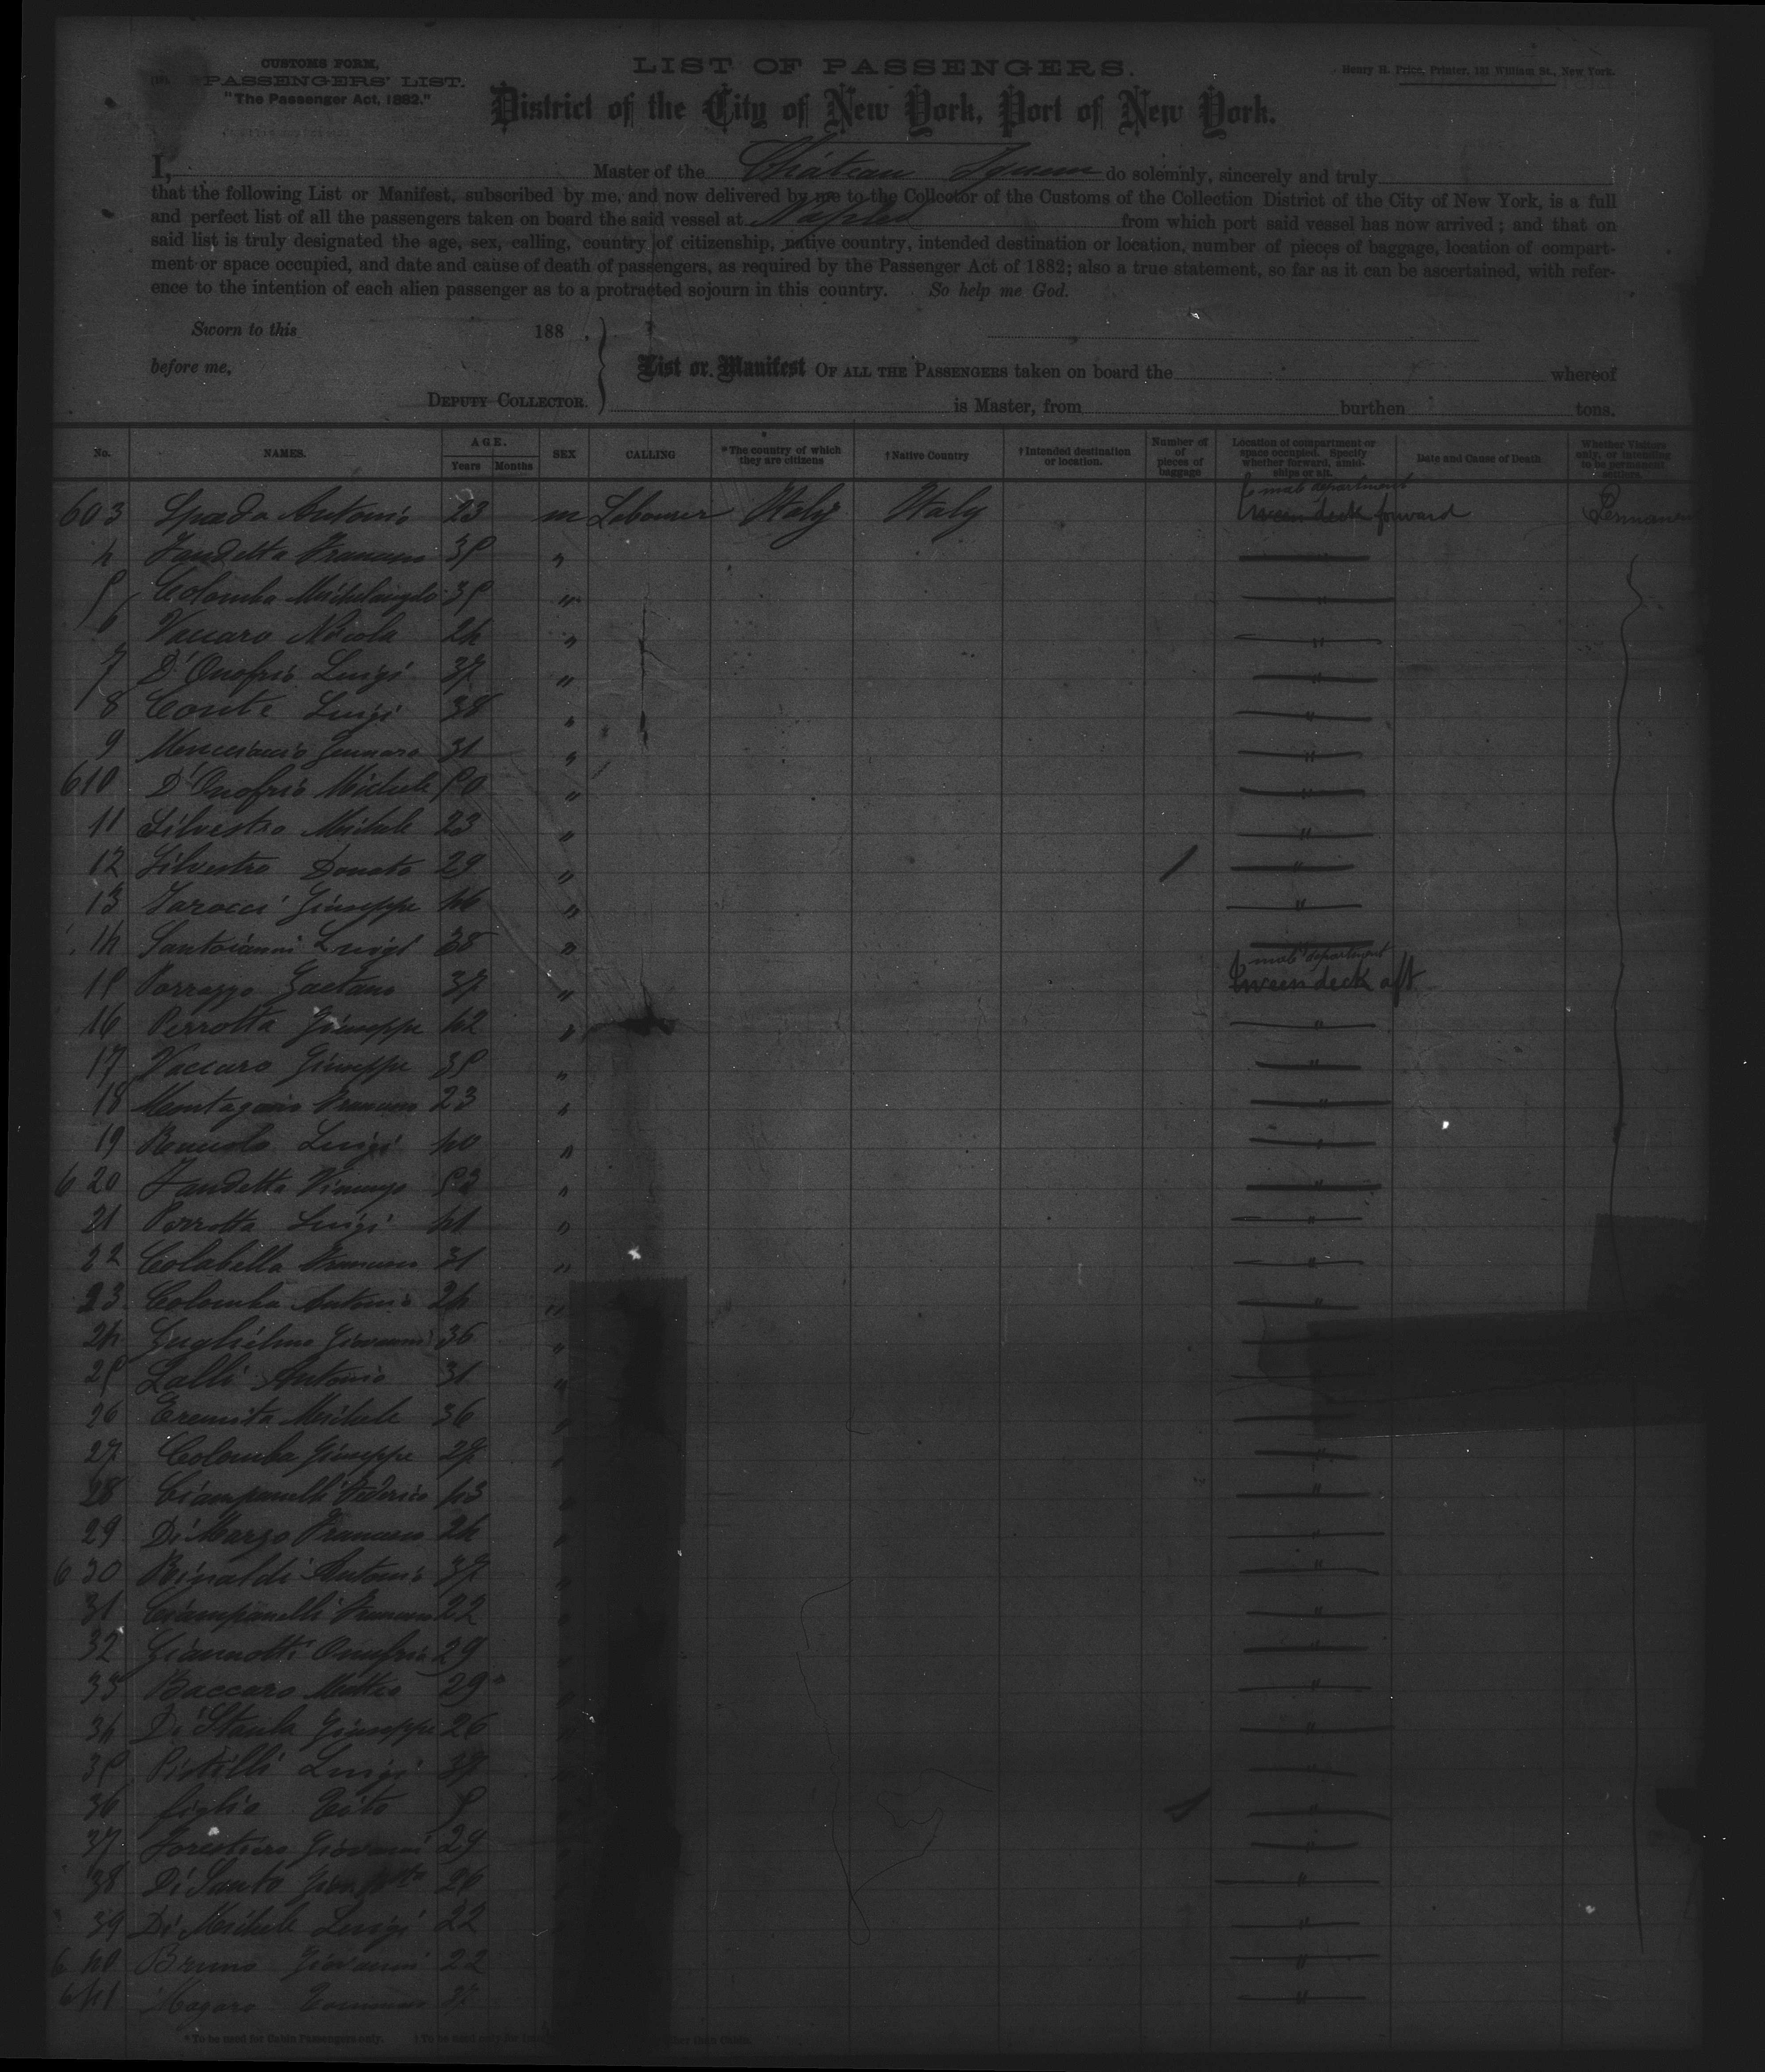 CUSTOMS FORM,
PASSENGERS' LIST.
"The Passenger Act, 1882."
LIST OF PASSENGERS.
Henry H. Price, Printer, 131 William St., New York.
District of the City of New York, Port of New York.
I, Master of the Château Yquem do solemnly, sincerely and truly
that the following List or Manifest, subscribed by me, and now delivered by me to the Collector of the Customs of the Collection District of the City of New York, is a full
and perfect list of all the passengers taken on board the said vessel at Naples from which port said vessel has now arrived; and that on
said list is truly designated the age, sex, calling, country of citizenship, native country, intended destination or location, number of pieces of baggage, location of compart-
ment or space occupied, and date and cause of death of passengers, as required by the Passenger Act of 1882; also a true statement, so far as it can be ascertained, with refer-
ence to the intention of each alien passenger as to a protracted sojourn in this country. So help me God.
Sworn to this 188 .
before me,
DEPUTY COLLECTOR.
List or Manifest OF ALL THE PASSENGERS taken on board the whereof
is Master, from burthen tons.
No. NAMES. AGE. Years Months SEX CALLING *The country of which they are citizens †Native Country †Intended destination or location. Number of pieces of baggage Location of compartment or space occupied. Specify whether forward, amidships or aft. Date and Cause of Death Whether Visitors only, or intending to be permanent settlers.
603 Spada Antonio 23 m Labourer Italy Italy department tween deck forward
4 Iandetta Francesco 35 "
5 Colomba Michelangelo 35 " "
6 Vaccaro Nicola 24 " "
7 D'Onofrio Luigi 37 " "
8 Conte Luigi 38 " "
9 Gennaro 31 " "
610 D'Onofrio Michele 50 " "
11 Silvestro Michele 23 " "
12 Silvestro Donato 29 " "
13 Iarocci Giuseppe 46 " "
14 Santoianni Luigi 38 "
15 Porrazzo Gaetano 37 " department tween deck aft
16 Perrotta Giuseppe 42 " "
17 Vaccaro Giuseppe 35 " "
18 Francesco 23 " "
19 Luigi 40 " "
620 Iandetta Vincenzo 53 " "
21 Perrotta Luigi 41 " "
22 Colabella Francesco 31 " "
23 Colomba Antonio 24 " "
24 Guglielmo Giovanni 36 "
25 Lalli Antonio 31 "
26 Eremita Michele 36 "
27 Colomba Giuseppe 27 "
28 Ciampanelli Federico 43 "
29 Di Marzo Francesco 24 "
630 Rinaldi Antonio 37 "
31 Ciampanelli Francesco 22 "
32 Giannotti Onofrio 29 "
33 Baccaro Matteo 29 "
34 Giuseppe 26 "
35 Pistilli Luigi 37 "
36 figlio Tito 5 "
37 Forestiero Giovanni 29 "
38 Di Santo 26 "
39 Di Michele Luigi 22 "
640 Bruno Giovanni 22 "
641 Magaro 37 "
*To be used for Cabin Passengers only. †To be used only for